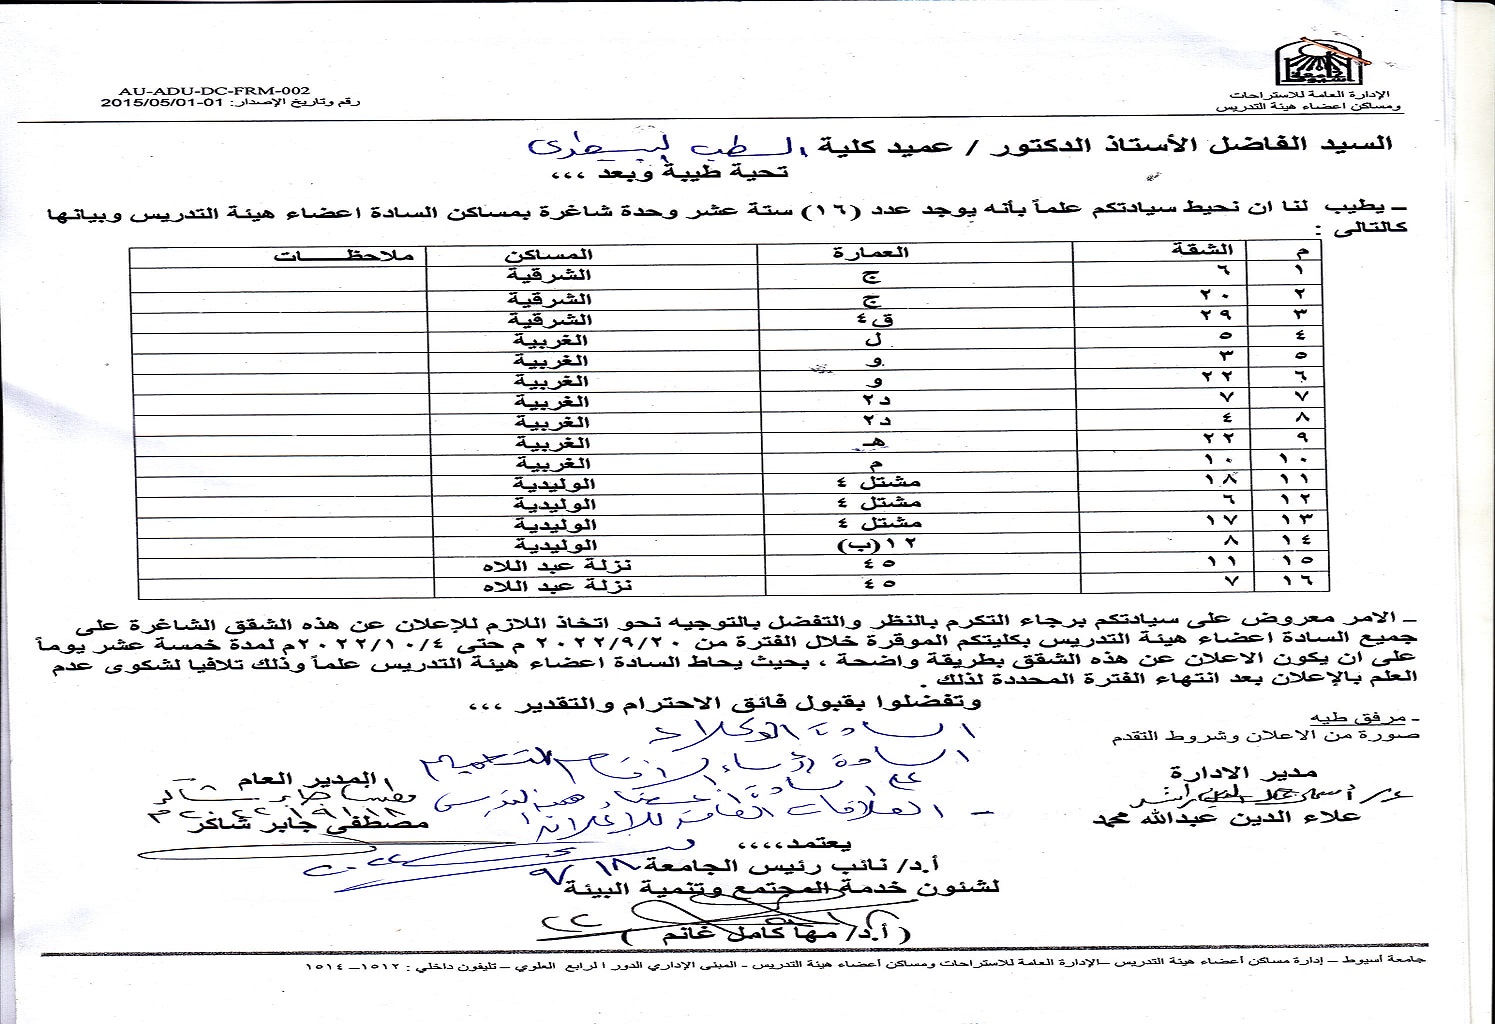 الإدارة العامة للاستراحات
ومساكن اعضاء هيئة التدريس
AU-ADU-DC-FRM-002
رقم وتاريخ الإصدار: 01-2015/05/01
السيد الفاضل الأستاذ الدكتور / عميد كلية الطب البيطرى
تحية طيبة وبعد ،،،
ـ يطيب لنا ان نحيط سيادتكم علماً بأنه يوجد عدد (١٦) ستة عشر وحدة شاغرة بمساكن السادة اعضاء هيئة التدريس وبيانها
كالتالى :
م الشقة العمارة المساكن ملاحظـــــات
١ ٦ ج الشرقية
٢ ٢٠ ج الشرقية
٣ ٢٩ ق٤ الشرقية
٤ ٥ ل الغربية
٥ ٣ و الغربية
٦ ٢٢ و الغربية
٧ ٧ د٢ الغربية
٨ ٤ د٢ الغربية
٩ ٢٢ هـ الغربية
١٠ ١٠ م الغربية
١١ ١٨ مشتل ٤ الوليدية
١٢ ٦ مشتل ٤ الوليدية
١٣ ١٧ مشتل ٤ الوليدية
١٤ ٨ ١٢(ب) الوليدية
١٥ ١١ ٤٥ نزلة عبد اللاه
١٦ ٧ ٤٥ نزلة عبد اللاه
ـ الامر معروض على سيادتكم برجاء التكرم بالنظر والتفضل بالتوجيه نحو اتخاذ اللازم للإعلان عن هذه الشقق الشاغرة على
جميع السادة اعضاء هيئة التدريس بكليتكم الموقرة خلال الفترة من ٢٠٢٢/٩/٢٠ م حتى ٢٠٢٢/١٠/٤م لمدة خمسة عشر يوماً
على ان يكون الاعلان عن هذه الشقق بطريقة واضحة ، بحيث يحاط السادة اعضاء هيئة التدريس علماً وذلك تلافيا لشكوى عدم
العلم بالإعلان بعد انتهاء الفترة المحددة لذلك .
وتفضلوا بقبول فائق الاحترام والتقدير ،،،
ـ مرفق طيه
صورة من الاعلان وشروط التقدم
السادة الوكلاء
السادة رؤساء الاقسام
السادة أعضاء هيئة التدريس
ـ العلاقات العامة للإعلان
مدير الادارة
علاء الدين عبدالله محمد
المدير العام
مصطفى جابر شاكر
يعتمد،،،،
أ.د/ نائب رئيس الجامعة
لشئون خدمة المجتمع وتنمية البيئة
( أ.د/ مها كامل غانم )
جامعة أسيوط – إدارة مساكن أعضاء هيئة التدريس –الإدارة العامة للاستراحات ومساكن أعضاء هيئة التدريس - المبنى الإداري الدور الرابع العلوي – تليفون داخلي : ١٥١٢– ١٥١٤